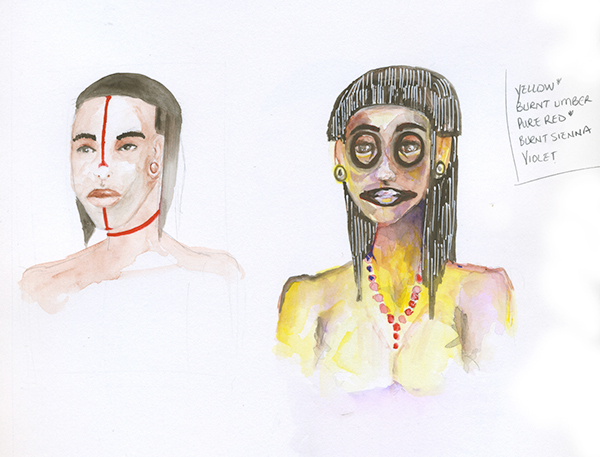 YELLOW*
BURNT UMBER
PURE RED*
BURNT SIENNA
VIOLET